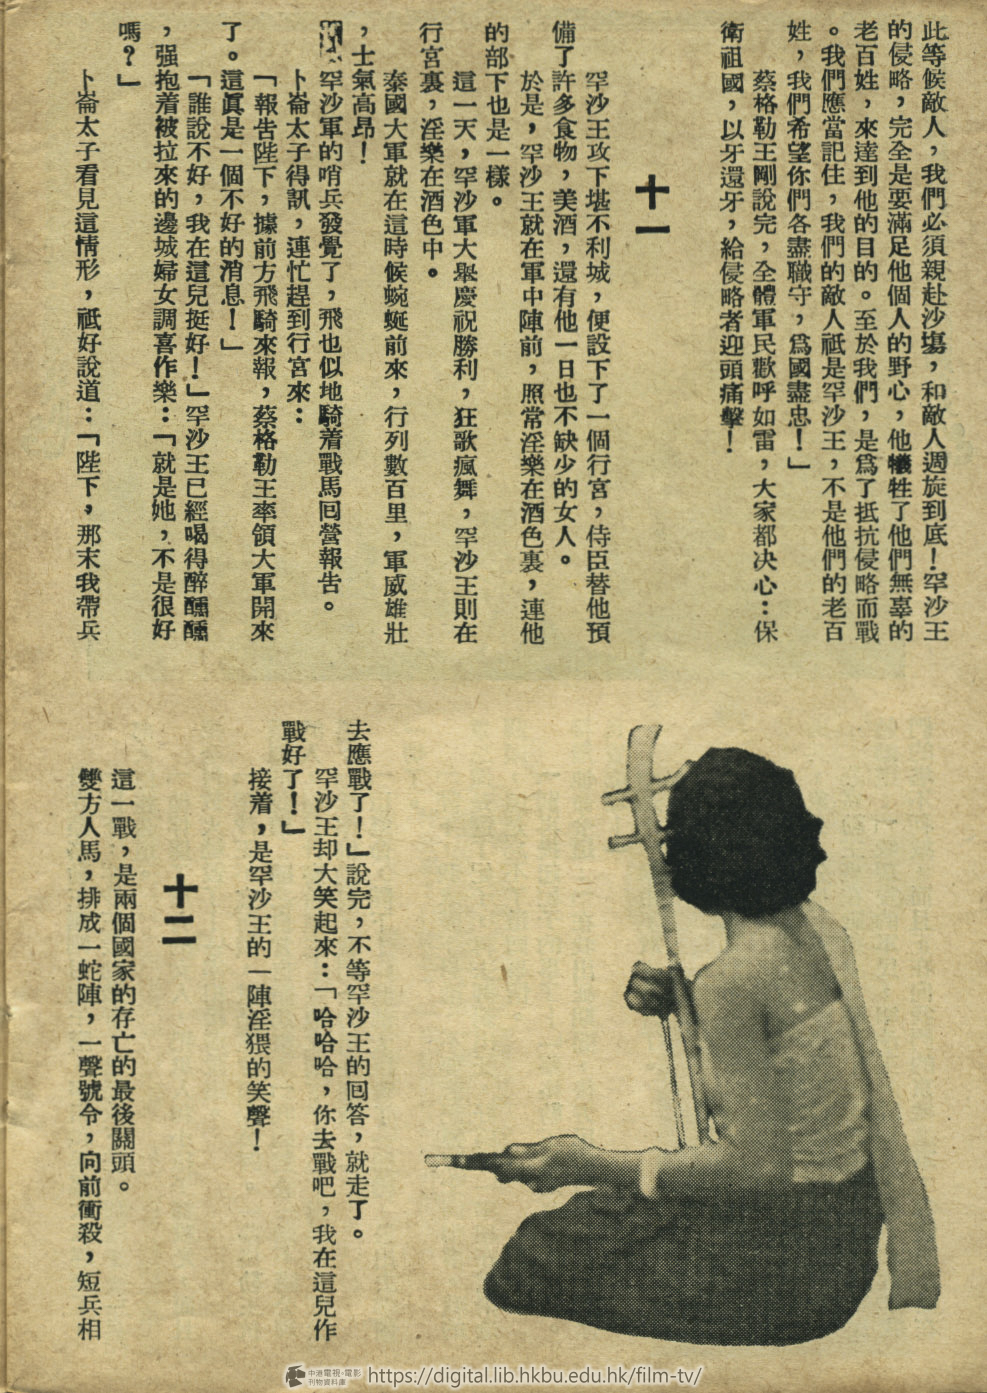 此等候敵人，我們必須親赴沙塲，和敵人週旋到底！罕沙王
的侵略，完全是要滿足他個人的野心，他犧牲了他們無辜的
老百姓，來達到他的目的。至於我們，是爲了抵抗侵略而戰
。我們應當記住，我們的敵人祇是罕沙王，不是他們的老百
姓，我們希望你們各盡職守，爲國盡忠！」
蔡格勒王剛說完，全體軍民歡呼如雷，大家都决心：保
衛祖國，以牙還牙，給侵略者迎頭痛擊！
十一
罕沙王攻下堪不利城，便設下了一個行宮，侍臣替他預
備了許多食物，美酒，還有他一日也不缺少的女人。
於是，罕沙王就在軍中陣前，照常淫樂在酒色裏，連他
的部下也是一樣。
這一天，罕沙軍大舉慶祝勝利，狂歌瘋舞，罕沙王則在
行宮裏，淫樂在酒色中。
泰國大軍就在這時候蜿蜒前來，行列數百里，軍威雄壯
，士氣高昂！
罕沙軍的哨兵發覺了，飛也似地騎着戰馬囘營報告。
卜崙太子得訊，連忙趕到行宮來：
「報告陛下，據前方飛騎來報，蔡格勒王率領大軍開來
了。這眞是一個不好的消息！」
「誰說不好，我在這兒挺好！」罕沙王已經喝得醉醺醺
，强抱着被拉來的邊城婦女調喜作樂：「就是她，不是很好
嗎？」
卜崙太子看見這情形，祇好說道：「陛下，那末我帶兵
去應戰了！」說完，不等罕沙王的回答，就走了。
罕沙王却大笑起來：「哈哈哈，你去戰吧，我在這兒作
戰好了！」
接着，是罕沙王的一陣淫猥的笑聲！
十二
這一戰，是兩個國家的存亡的最後關頭。
雙方人馬，排成一蛇陣，一聲號令，向前衝殺，短兵相
中港電視·電影
刊物資料庫
https://digital.lib.hkbu.edu.hk/film-tv/